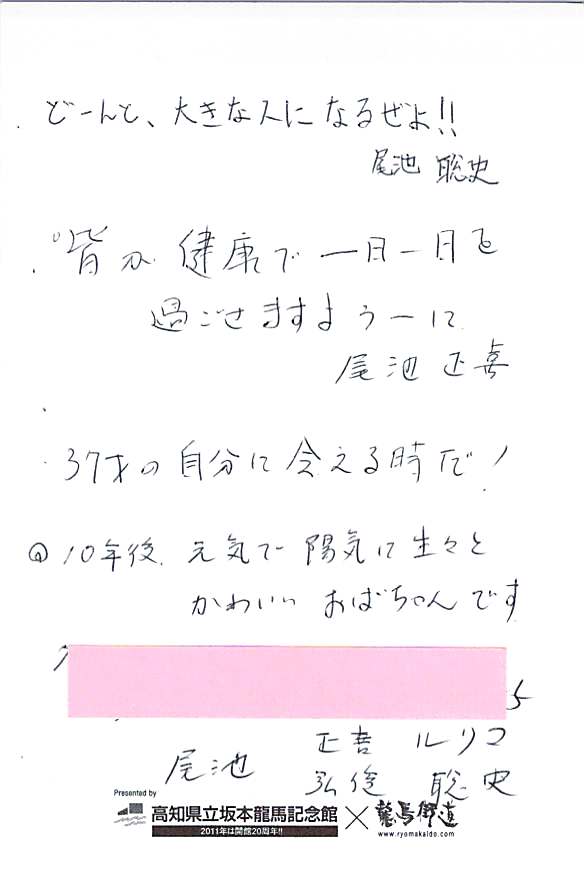 どーんと、大きな人になるぜよ!!
尾池 聡史
皆が 健康で 一日一日を
過ごせますよう一に
尾池 正喜
37才の自分に会える時だ!
10年後、元気で陽気に生々と
かわいい おばちゃんです
尾池
正喜 ルリコ
弘俊 聡史
Presented by
高知県立坂本龍馬記念館 × 龍馬街道
2011年は開館20周年!!
www.ryomakaido.com